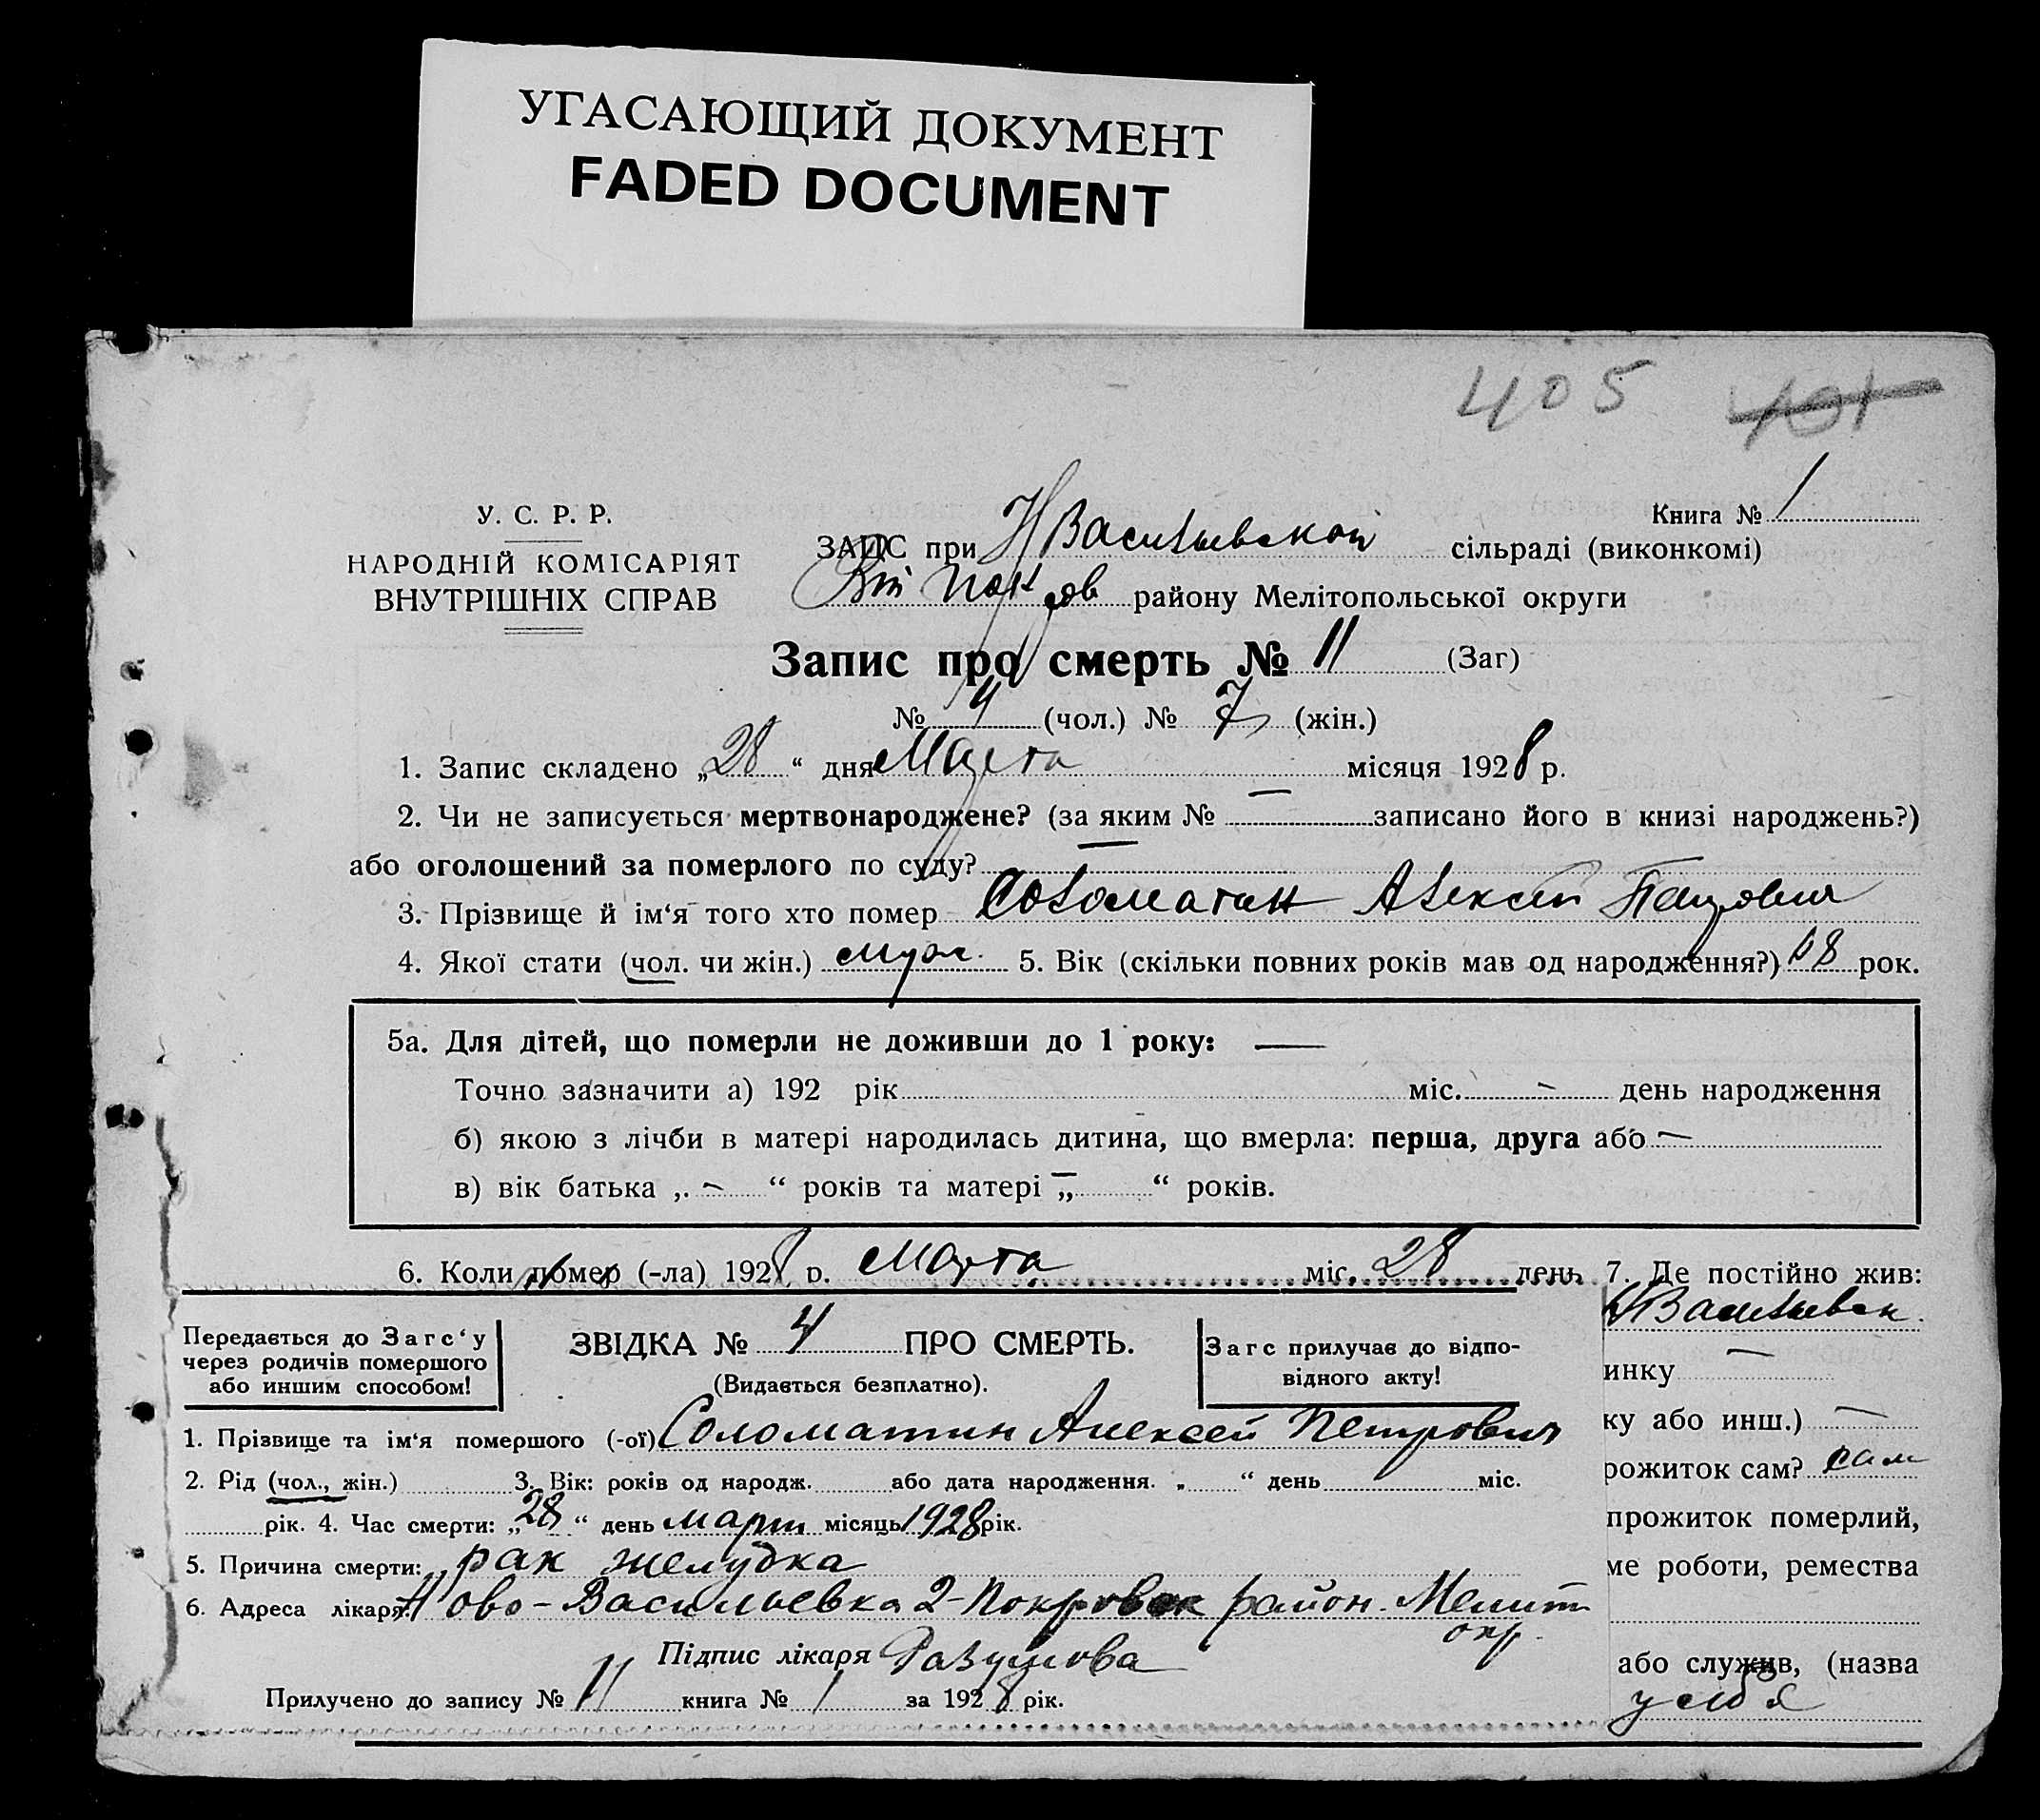 УГАСАЮЩИЙ ДОКУМЕНТ
FADED DOCUMENT
405 401
У. С. Р. Р.
НАРОДНІЙ КОМІСАРІЯТ
ВНУТРІШНІХ СПРАВ
Книга № 1
ЗАПІС при НВасильевской сільраді (виконкомі)
району Мелітопольської округи
Запис про смерть № 11 (Заг)
№ 4 (чол.) № 7 (жін.)
1. Запис складено „28“ дня Марта місяця 1928 р.
2. Чи не записується мертвонароджене? (за яким № — записано його в книзі народжень?)
або оголошений за померлого по суду? —
3. Прізвище й ім‘я того хто помер Соломатин Алексей Петрович
4. Якої стати (чол. чи жін.) муж. 5. Вік (скільки повних років мав од народження?) 68 рок.
5а. Для дітей, що померли не доживши до 1 року: —
Точно зазначити а) 192 рік міс. — день народження
б) якою з лічби в матері народилась дитина, що вмерла: перша, друга або —
в) вік батька „ — “ років та матері „ — “ років.
6. Коли помер (-ла) 1928 р. Марта міс. 28 день 7. Де постійно жив:
НВасильевск.
Передається до Загс‘у
через родичів помершого
або иншим способом!
ЗВІДКА № 4 ПРО СМЕРТЬ.
(Видається безплатно).
Загс прилучає до відпо-
відного акту!
инку —
ку або инш.) —
1. Прізвище та ім‘я помершого (-ої) Соломатин Алексей Петрович
2. Рід (чол., жін.) 3. Вік: років од народж. або дата народження. „ “ день міс.
рожиток сам? сам
рік. 4. Час смерти: „28“ день март місяць 1928 рік.
прожиток померлий,
5. Причина смерти: рак желудка
ме роботи, ремества
6. Адреса лікаря: Ново-Васильевка 2-Покровск район. Мелит
окр.
Підпис лікаря Разумова
або служив, (назва
у себя
Прилучено до запису № 11 книга № 1 за 1928 рік.